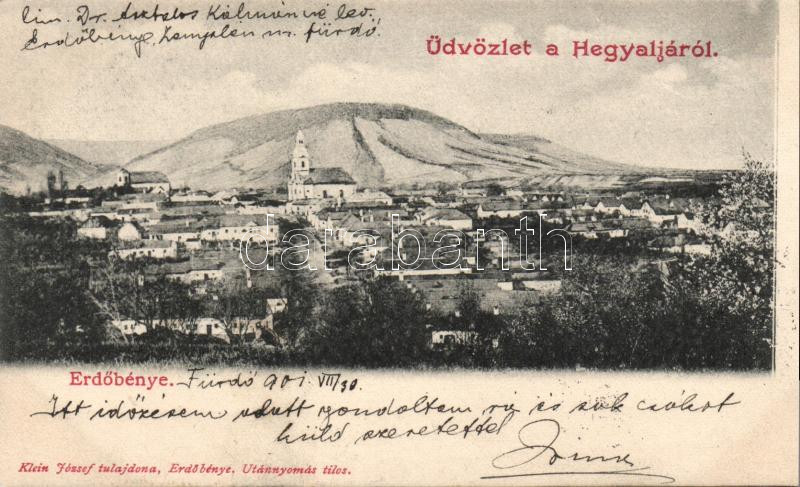 cím. Dr. Asztalos Kálmánné lev.
Erdőbénye, Zemplén m. fürdő
Üdvözlet a Hegyaljáról.
darabanth
Erdőbénye. Fürdő 901 VIII/30
Itt időzésem alatt gondoltam rá és sok csókot
küld szeretettel
Klein József tulajdona, Erdőbénye. Utánnyomás tilos.